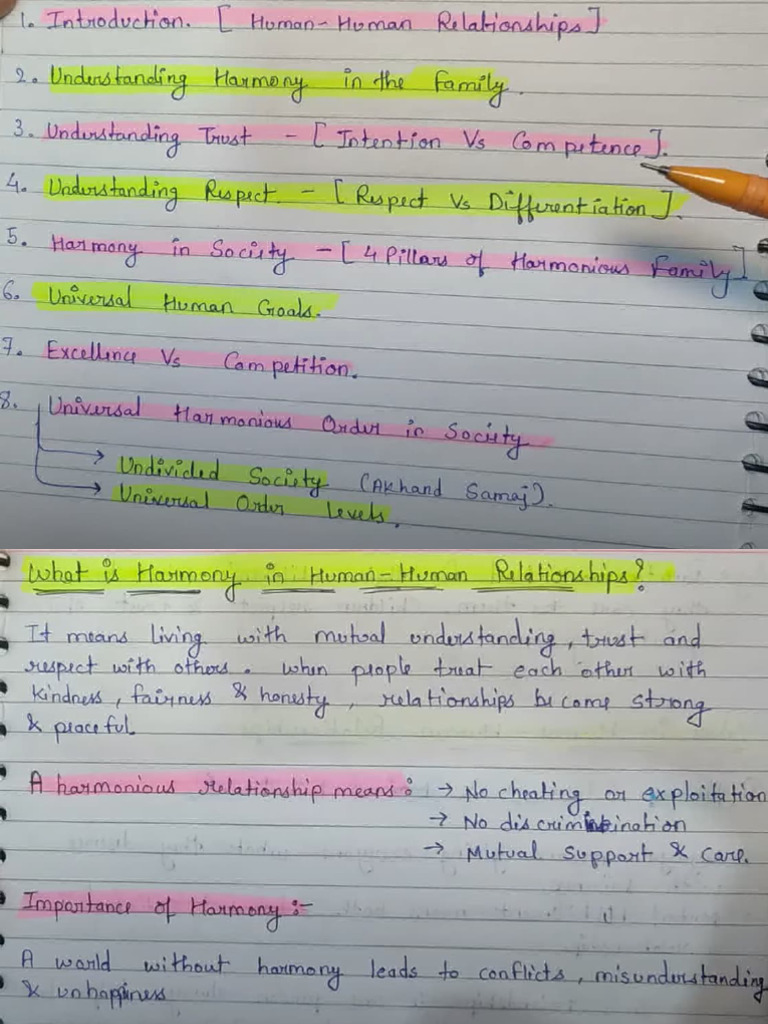 1. Introduction. [ Human-Human Relationships]
2. Understanding Harmony in the Family.
3. Understanding Trust - [ Intention Vs Competence].
4. Understanding Respect. - [ Respect Vs Differentiation].
5. Harmony in Society - [ 4 Pillars of Harmonious Family]
6. Universal Human Goals.
7. Excellence Vs Competition.
8. Universal Harmonious Order in Society
→ Undivided Society (Akhand Samaj).
→ Universal Order Levels.
What is Harmony in Human-Human Relationships?
It means living with mutual understanding, trust and
respect with others. When people treat each other with
kindness, fairness & honesty, relationships become strong
& peaceful.
A harmonious relationship means: → No cheating or exploitation
→ No discrimination
→ Mutual support & care.
Importance of Harmony :-
A world without harmony leads to conflicts, misunderstanding
& unhappiness